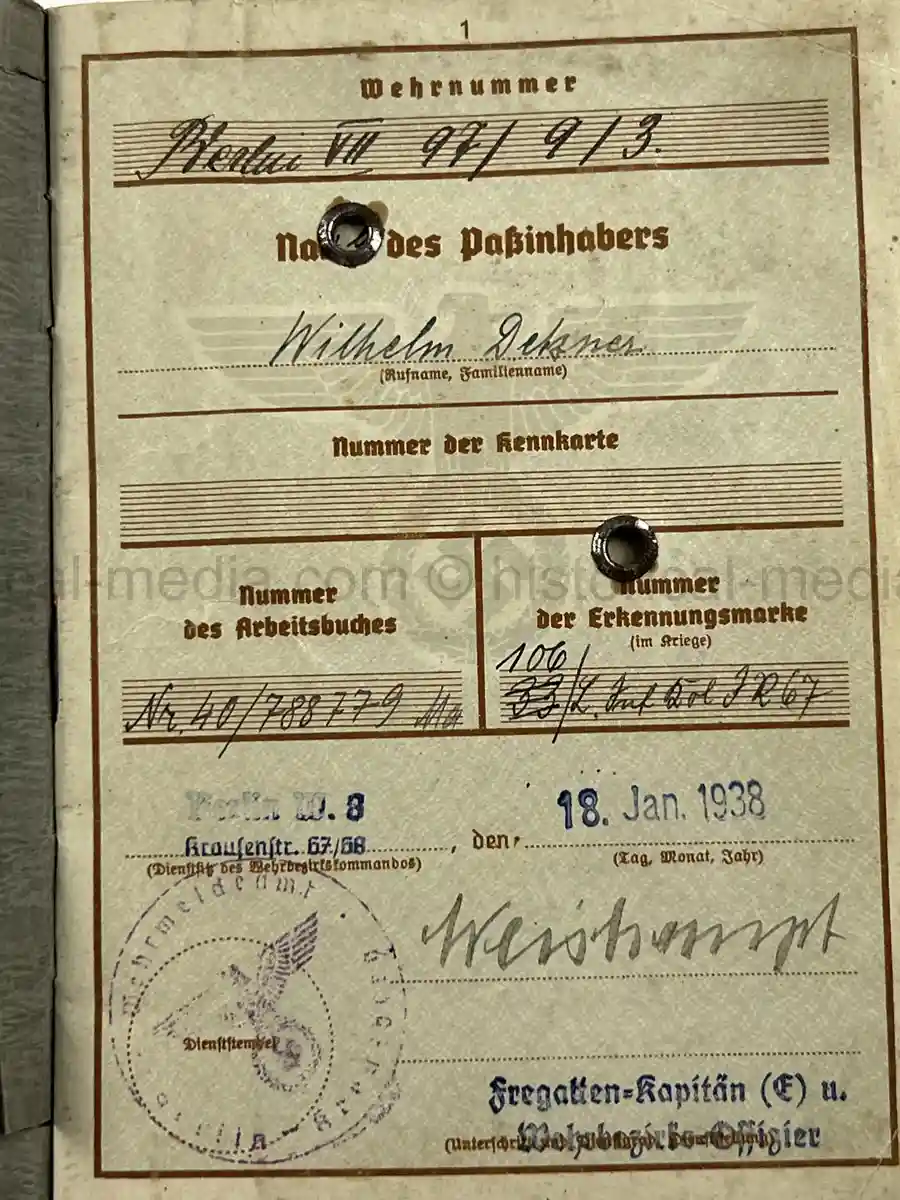 1
Wehrnummer
Berlin VII 97/ 9 / 3.
Na des Paßinhabers
Wilhelm
(Rufname, Familienname)
Nummer der Kennkarte
al-media.com © historical-media
Nummer
des Arbeitsbuches
Nummer
der Erkennungsmarke
(im Kriege)
106
Nr. 40/788779
33/L. Inf IR 67
Berlin W. 8
18. Jan. 1938
Krausenstr. 67/68
, den
(Dienstsitz des Wehrbezirkskommandos)
(Tag, Monat, Jahr)
Wehrmeldeamt
Dienststempel
Fregatten=Kapitän (E) u.
Wehrbezirks-Offizier